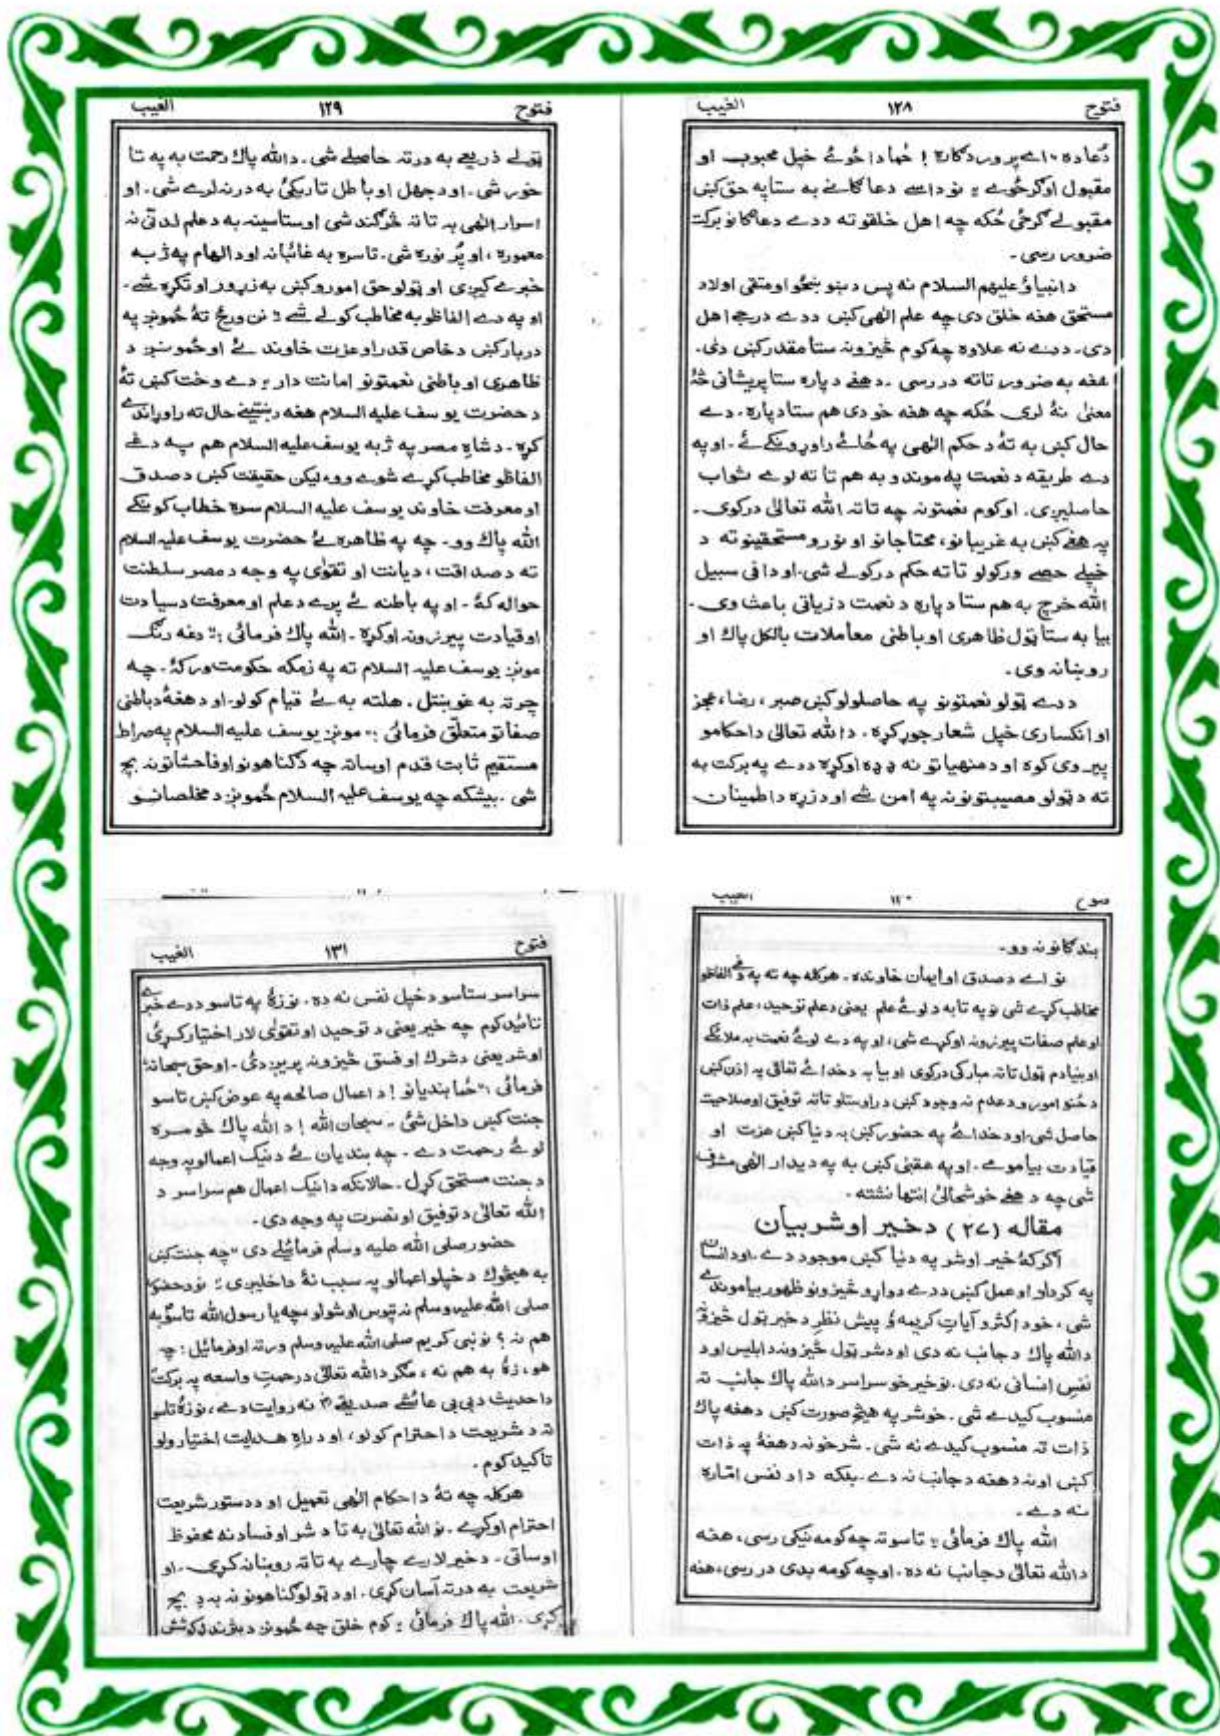 فتوح ١٢٨ الغیب
دُعا ده «اے پروردګاره! ځما دا ځوئے خپل محبوب او
مقبول اوګرځوے» نو داسے دعاګانے به ستا په حق کښ
مقبولے ګرځی ځکه چه اهل خلقو ته ددے دعاګانو برکت
ضرور رسی۔
دانبیاؤ علیهم السلام نه پس د ښو ښځو او متقی اولاد
مستحق هغه خلق دی چه علم الٰهی کښ ددے درجے اهل
دی۔ ددے نه علاوه چه کوم څیزونه ستا مقدر کښ دی۔
هغه به ضرور تاته در رسی۔ دهغے دپاره ستا پریشانی څهٔ
معنیٰ نهٔ لری ځکه چه هغه خودی هم ستا دپاره۔ دے
حال کښ به تهٔ د حکم الٰهی په ځائے راوړونکے ئے۔ او په
دے طریقه د نعمت په موندو به هم تا ته لوے ثواب
حاصلیږی۔ او کوم نعمتونه چه تاته الله تعالیٰ درکوی۔
په هغے کښ به غریبانو، محتاجانو او نورو مستحقینو ته د
خپلے حصے ورکولو تا ته حکم درکولے شی۔ او دا فی سبیل
الله خرچ به هم ستا دپاره د نعمت د زیاتی باعث وی۔
بیا به ستا ټول ظاهری او باطنی معاملات بالکل پاك او
روښانه وی۔
ددے ټولو نعمتونو په حاصلولو کښ صبر، رضا، عجز
او انکساری خپل شعار جوړ کړه۔ د الله تعالیٰ داحکامو
پیروی کوه او د منهیاتو نه ډډه اوکړه ددے په برکت به
ته د ټولو مصیبتونو نه په امن شے او د زړه د اطمینان
فتوح ١٢٩ الغیب
ټولے ذریعے به درته حاصلے شی۔ د الله پاك رحمت به په تا
خور شی۔ او د جهل او باطل تاریکیٔ به درنه لرے شی۔ او
اسرار الٰهی به تا ته څرګند شی او ستا سینه به د علم لدنّی نه
معموره، او پُر نوره شی۔ تا سره به غائبانه او د الهام په ژبه
خبرے کیږی او ټولو حق امورو کښ به زړور او تکړه شے۔
او په دے الفاظو به مخاطب کولے شے «نن ورځ تهٔ ځمونږ په
دربار کښ د خاص قدر او عزت خاوند ئے او ځمونږ د
ظاهری او باطنی نعمتونو امانت دار» دے وخت کښ تهٔ
د حضرت یوسف علیه السلام هغه رښتینے حال ته راوړاندے
کړه۔ د شاهِ مصر په ژبه یوسف علیه السلام هم په دغے
الفاظو مخاطب کړے شوے وو، لیکن حقیقت کښ د صدق
او معرفت خاوند یوسف علیه السلام سره خطاب کوونکے
الله پاك وو۔ چه په ظاهره ئے حضرت یوسف علیه السلام
ته د صداقت، دیانت او تقوٰی په وجه د مصر سلطنت
حواله کهٔ۔ او په باطنه ئے پرے د علم او معرفت د سیادت
او قیادت پیرزونه اوکړه۔ الله پاك فرمائی «دغه رنګ
مونږ یوسف علیه السلام ته په زمکه حکومت ورکهٔ۔ چه
چرته به غوښتل۔ هلته به ئے قیام کولو۔ او د هغهٔ د باطنی
صفاتو متعلق فرمائی «مونږ یوسف علیه السلام په صراط
مستقیم ثابت قدم اوساته چه د ګناهونو او فاحشاتو نه بچ
شی۔ بیشکه چه یوسف علیه السلام ځمونږ د مخلصانو
١٣٠ الغیب
بندګانو نه وو۔
نو اے د صدق او ایمان خاونده۔ هرکله چه ته په دغے الفاظو
مخاطب کړے شی نو په تا به د لوئے علم یعنی د علم توحید، علم ذات
او علم صفات پیرزونه اوکړے شی، او په دے لوئے نعمت به ملائکے
او بنیادم ټول تا ته مبارکی درکوی او بیا به د خدائے تعالیٰ په اذن کښ
د ځنو امورو د عدم نه وجود کښ د راوستلو تاته توفیق او صلاحیت
حاصل شی۔ او د خدائے په حضور کښ به دنیا کښ عزت او
قیادت بیامومے۔ او په عقبیٰ کښ به په دیدار الٰهی مشرف
شی چه د هغے خوشحالئ انتها نشته۔
مقاله (٢٧) د خیر او شر بیان
اګرکهٔ خیر او شر په دنیا کښ موجود دے۔ او د انسان
په کردار او عمل کښ ددے دواړو څیزونو ظهور بیاموندے
شی، خو د اکثرو آیات کریمهؤ پیش نظر د خیر ټول څیزونه
د الله پاك د جانب نه دی او د شر ټول څیزونه د ابلیس او د
نفسِ انسانی نه دی۔ نو خیر خو سراسر د الله پاك جانب ته
منسوب کیدے شی۔ خو شر په هیڅ صورت کښ د هغه پاك
ذات ته منسوب کیدے نه شی۔ شر خو نه د هغهٔ په ذات
کښ او نه د هغه د جانب نه دے۔ بلکه دا د نفس امّاره
نه دے۔
الله پاك فرمائی «تاسو ته چه کومه نیکی رسی، هغه
د الله تعالیٰ د جانب نه ده۔ او چه کومه بدی در رسی، هغه
فتوح ١٣١ الغیب
سراسر ستاسو د خپل نفس نه ده۔ نو زهٔ په تاسو ددے خبرے
تائید کوم چه خیر یعنی د توحید او تقوٰی لار اختیار کړئ
او شر یعنی د شرك او فسق څیزونه پریږدئ۔ او حق سبحانهٔ
فرمائی «ځما بندیانو! د اعمال صالحه په عوض کښ تاسو
جنت کښ داخل شئ۔ سبحان الله! د الله پاك څومره
لوئے رحمت دے۔ چه بندیان ئے د نیک اعمالو په وجه
د جنت مستحق کړل۔ حالانکه دا نیک اعمال هم سراسر د
الله تعالیٰ د توفیق او نصرت په وجه دی۔
حضور صلی الله علیه وسلم فرمائیلے دی «چه جنت کښ
به هیڅوك د خپلو اعمالو په سبب نهٔ داخلیږی» نو د حضور
صلی الله علیه وسلم نه تپوس اوشولو «چه یا رسول الله تاسو به
هم نه؟» نو نبی کریم صلی الله علیه وسلم ورته اوفرمائیل «چه
هو، زهٔ به هم نه، مګر د الله تعالیٰ د رحمت واسعه په برکت
دا حدیث د بی بی عائشے صدیقے نه روایت دے، نو زهٔ تاسو
ته د شریعت د احترام کولو، او د راهِ هدایت اختیارولو
تاکید کوم۔
هرکله چه تهٔ د احکام الٰهی تعمیل او د دستور شریعت
احترام اوکړے۔ نو الله تعالیٰ به تا د شر او فساد نه محفوظ
اوساتی۔ د خیر لارے چارے به تا ته روښانه کړی۔ او
شریعت به درته آسان کړی۔ او د ټولو ګناهونو نه به دِ بچ
کړی۔ الله پاك فرمائی «کوم خلق چه ځمونږ د پیژندلو کوشش